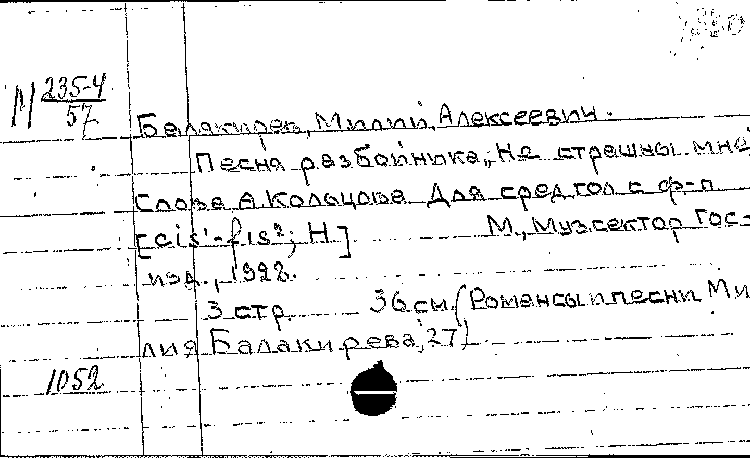 М 235-4
57
Балакирев, Милий Алексеевич.
Песня разбойника „Не страшны мне
Слова А. Кольцова Для сред гол с ф-п
[cis¹-fis²; H] М., Музсектор Гос-
изд.,
3 стр. 36 см. (Романсы и песни Ми
лия Балакирева, 27)
1052